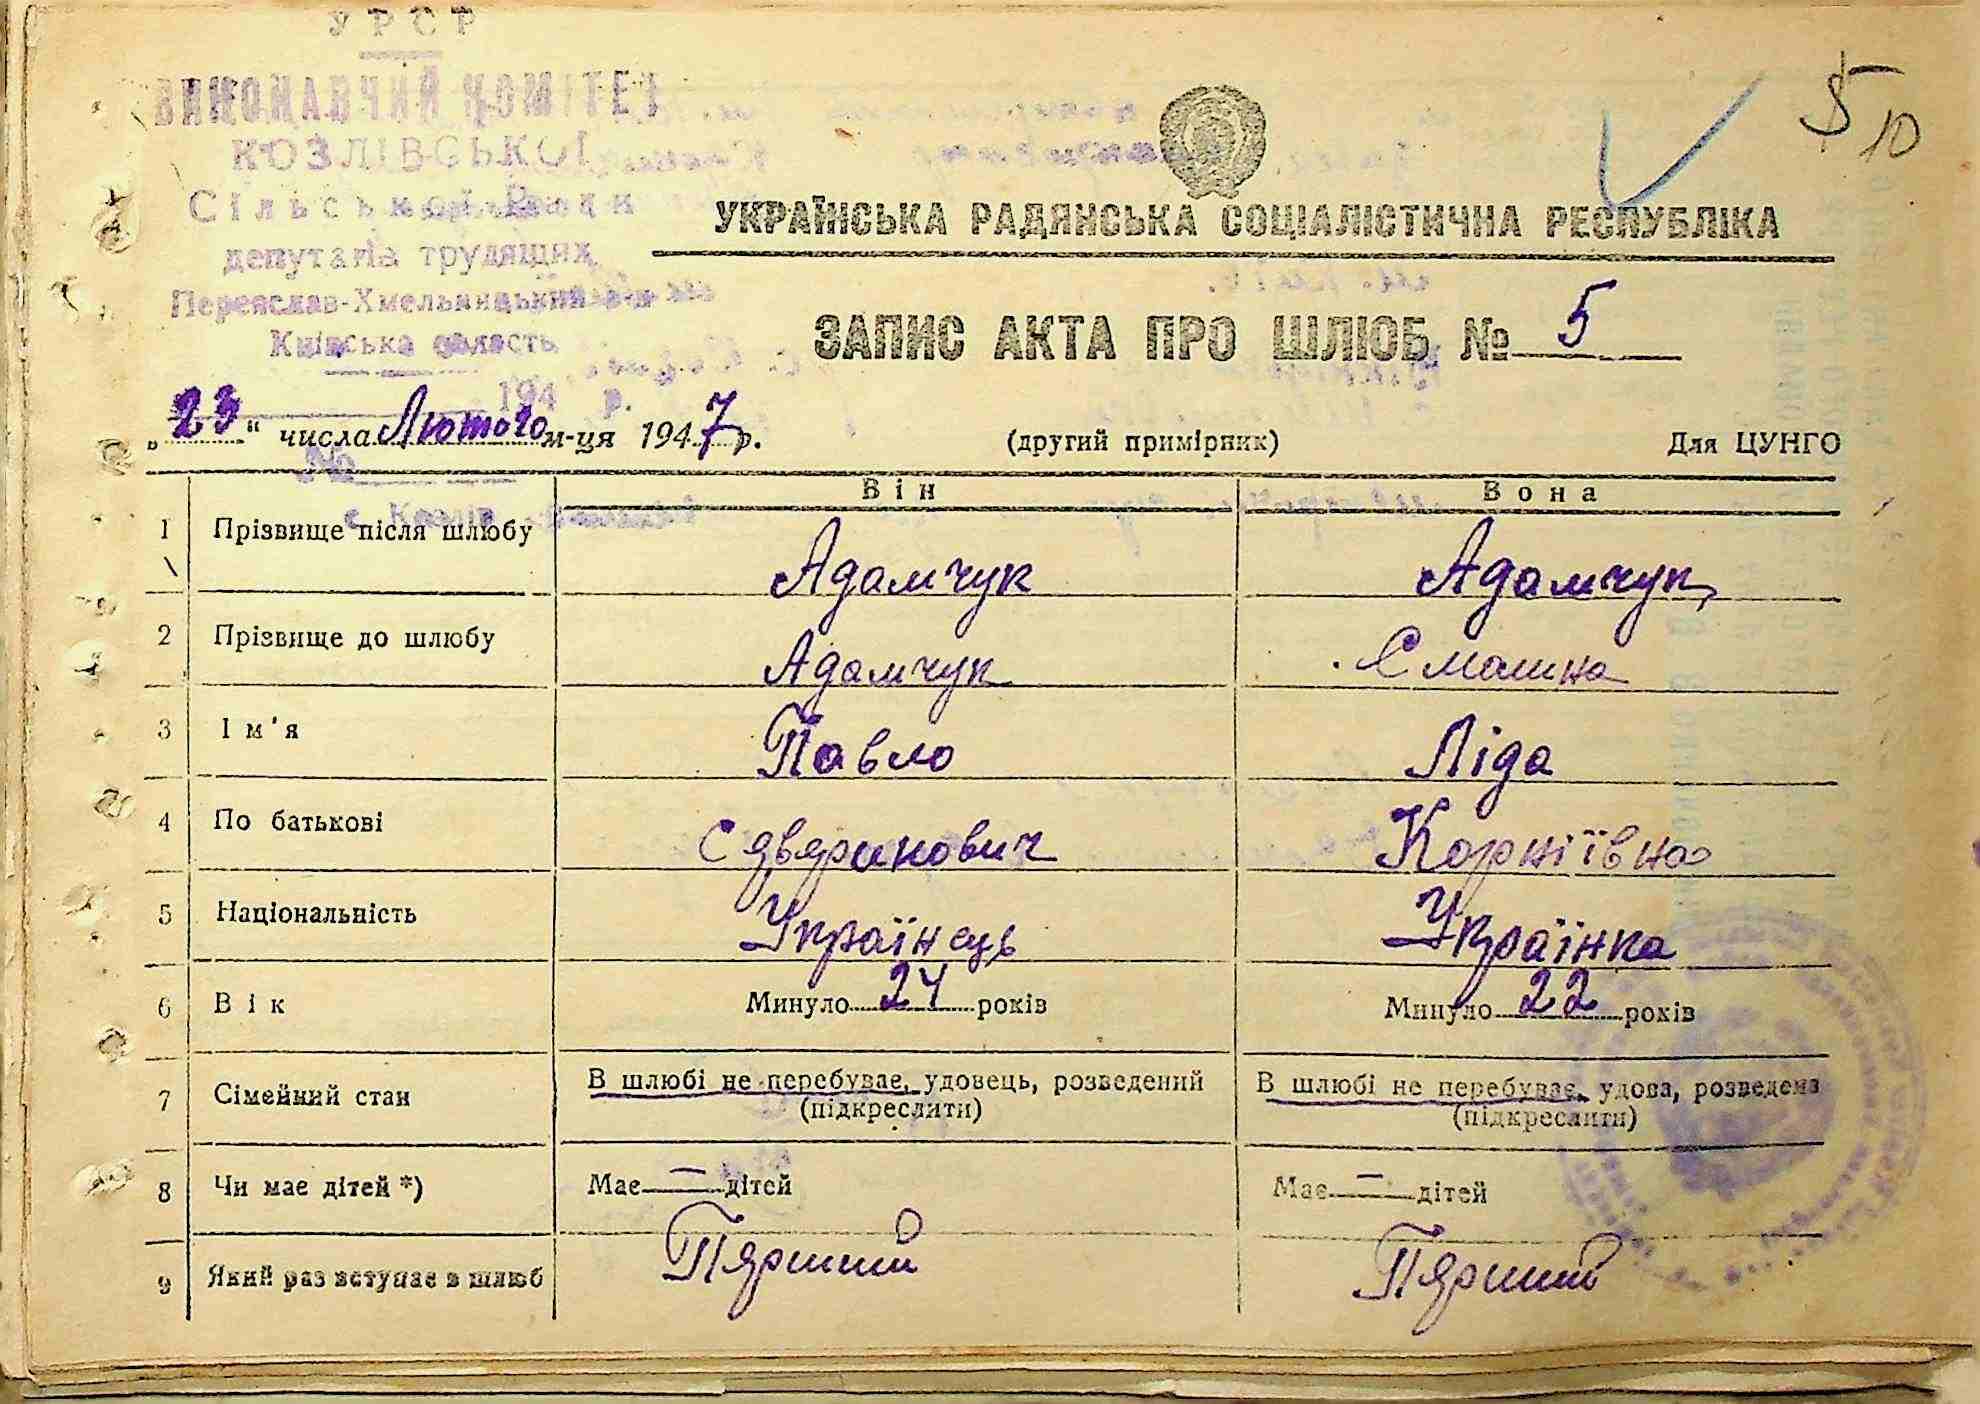 УРСР
ВИКОНАВЧИЙ КОМІТЕТ
КОЗЛІВСЬКОЇ
Сільської Ради
депутатів трудящих
Переяслав-Хмельницький р-н
Київська область
194 р.
№
с. Козлів
5
10
УКРАЇНСЬКА РАДЯНСЬКА СОЦІАЛІСТИЧНА РЕСПУБЛІКА
ЗАПИС АКТА ПРО ШЛЮБ № 5
„23" числа Лютого м-ця 1947 р. (другий примірник) Для ЦУНГО
Він Вона
1 Прізвище після шлюбу Адамчук Адамчук
2 Прізвище до шлюбу Адамчук Смалина
3 Ім'я Павло Ліда
4 По батькові Сявяринович Корніївна
5 Національність Українець Українка
6 Вік Минуло 24 років Минуло 22 років
7 Сімейний стан В шлюбі не перебуває, удовець, розведений (підкреслити) В шлюбі не перебуває, удова, розведена (підкреслити)
8 Чи має дітей *) Має — дітей Має — дітей
9 Який раз вступає в шлюб Пярший Пярший